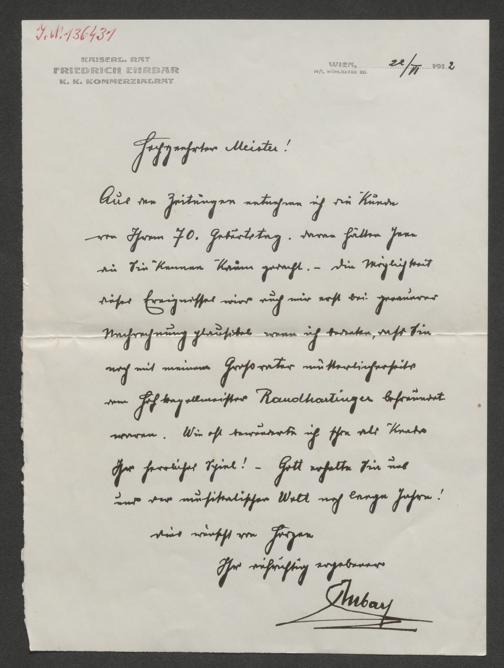 J.N. 136431
KAISERL. RAT
FRIEDRICH EHRBAR
K. K. KOMMERZIALRAT
WIEN, 22/VI 1912
Hochgeehrter Meister!
Aus den Zeitungen entnehme ich die Kunde
von Ihrem 70. Geburtstag. daran hätten Jene
die Sie kennen kaum gedacht. – Die Möglichkeit
dieses Ereignisses wird auch mir erst bei genauerer
Nachrechnung plausibel wenn ich bedenke, dass Sie
noch mit meinem Großvater mütterlicherseits
dem Hofkapellmeister Randhartinger befreundet
waren. Wie oft bewunderte ich schon als Knabe
Ihr herrliches Spiel! – Gott erhalte Sie uns
und der musikalischen Welt noch lange Jahre!
dies wünscht von Herzen
Ihr aufrichtig ergebener